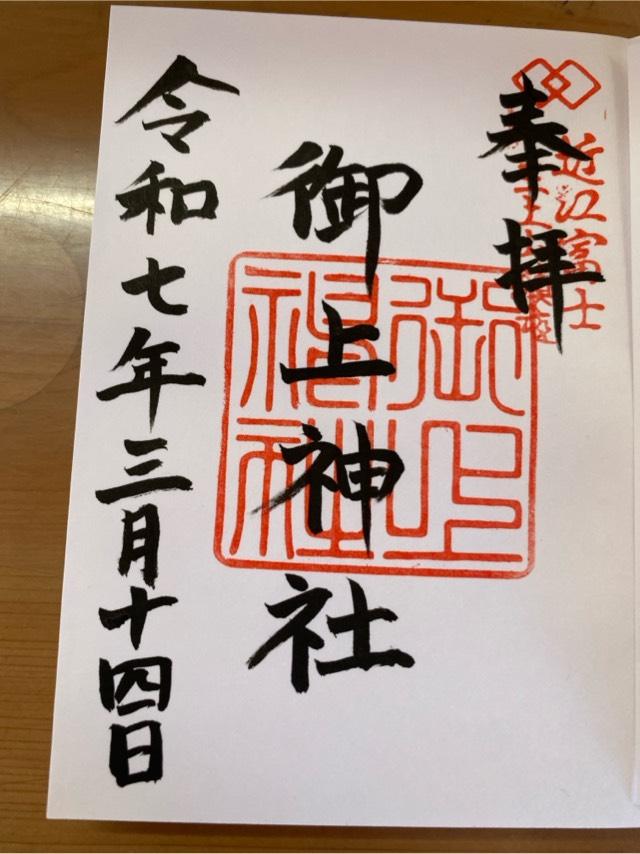 奉拝
近江富士
御上神社
御上神社
令和七年三月十四日